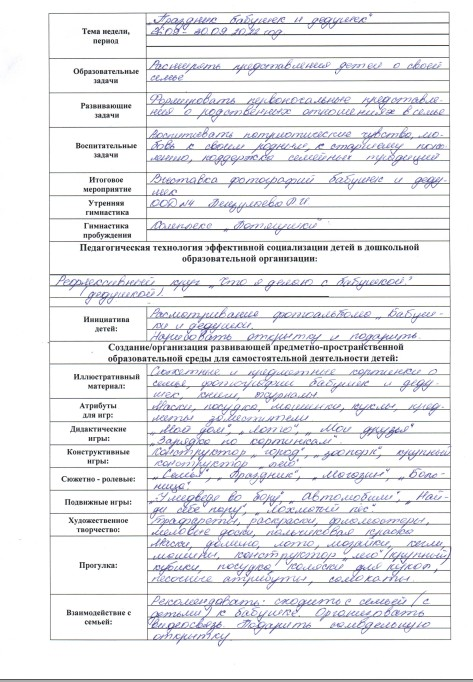 Тема недели, „Праздник бабушек и дедушек"
период 26.09 - 30.09.2022 год
Образовательные Расширять представления детей о своей
задачи семье
Развивающие Формировать первоначальные представле-
задачи ния о родственных отношениях в семье
Воспитательные Воспитывать патриотические чувства, лю-
задачи бовь к своим родным, к старшему поко-
лению, поддержка семейных традиций
Итоговое Выставка фотографий бабушек и деду-
мероприятие шек
Утренняя ООД №4
гимнастика
Гимнастика Комплекс „Потягушки"
пробуждения
Педагогическая технология эффективной социализации детей в дошкольной
образовательной организации:
Рефлексивный круг „Что я делаю с бабушкой?
(дедушкой).
Инициатива Рассматривание фотоальбома „Бабуш-
детей: ки и дедушки.
Нарисовать открытку и подарить
Создание/организация развивающей предметно-пространственной
образовательной среды для самостоятельной деятельности детей:
Иллюстративный Сюжетные и предметные картинки о
материал: семье, фотографии бабушек и деду-
шек, книги, журналы
Атрибуты Маски, посуда, машинки, куклы, пред-
для игр: меты заместители
Дидактические „Мой дом", „Лото", „Мои друзья"
игры: „Зарядка по картинкам"
Конструктивные Конструктор „город", „зоопарк", крупный
игры: конструктор „лего"
Сюжетно - ролевые: „Семья", „Праздник", „Магазин", „Боль-
ница"
Подвижные игры: „У медведя во бору", „Автомобили", „Най-
ди себе пару", „Лохматый пёс"
Художественное Трафареты, раскраски, фломастеры,
творчество: меловые доски, пальчиковая краска
Прогулка: Маски, домино, лото, мозайки, кегли,
машины, конструктор „лего" (крупный)
кубики, посуда, коляски для кукол,
песочные атрибуты, самокаты.
Взаимодействие с Рекомендовать: сходить с семьей (с
семьей: детьми) к бабушке. Организовать
видеосвязь. Подарить самодельную
открытку.